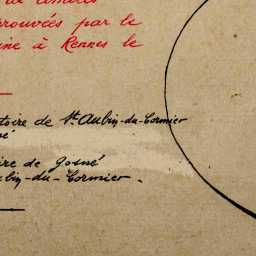 de
prouvées par le
ine à Rennes le
toire de St. Aubin-du-Cormier
né
ire de Gosné
ubin-du-Cormier.